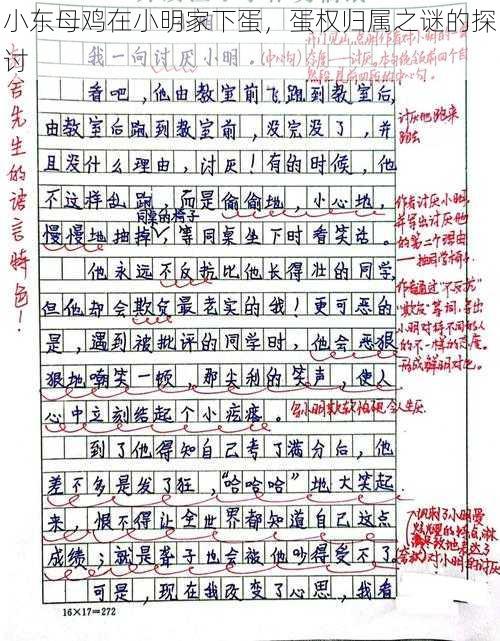 小东母鸡在小明家下蛋，蛋权归属之谜的探
讨
我一向讨厌小明。
舍先生的语言特色！
看吧，他由教室前飞跑到教室后，
由教室后跑到教室前，没完没了，并
且没什么理由，讨厌！有的时候，他
不这样乱跑，而是偷偷地，小心地，
同桌的椅子
慢慢地抽掉，等同桌坐下时看笑话。
他永远不反抗比他长得壮的同学，
但他却会欺负最老实的我！更可恶的
是，遇到被批评的同学时，他会恶狠
狠地嘲笑一顿，那尖利的笑声，使人
心中立刻结起个小疙瘩。
令人生厌
到了他得知自己考了满分后，他
差不多是发了狂，“哈哈哈”地大笑起
来，恨不得让全世界都知道自己这点
成绩；就是聋子也会被他吵得受不了。
可是，现在我改变了心思，我看
16×17=272
讨厌他跑来
跑去
作者讨厌小明，
并写出讨厌他
的第二个理由
——抽同学椅子。
作者通过“不反抗”
“欺负”等词，写出
小明对待不同的人
的不一样的态度。
形成鲜明对比。